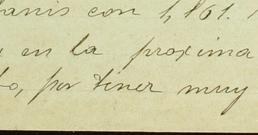 con 1,861.
en la proxima
por tener muy